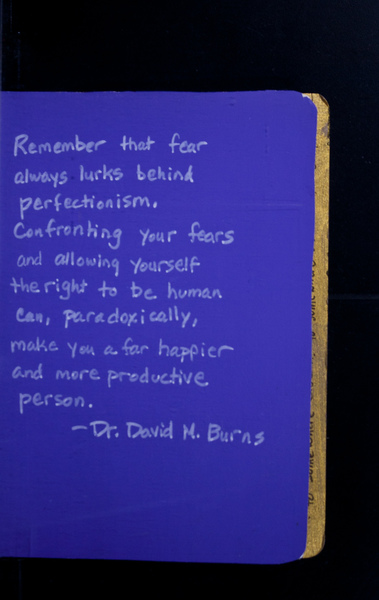 Remember that fear
always lurks behind
perfectionism.
Confronting your fears
and allowing yourself
the right to be human
can, paradoxically,
make you a far happier
and more productive
person.
-Dr. David M. Burns